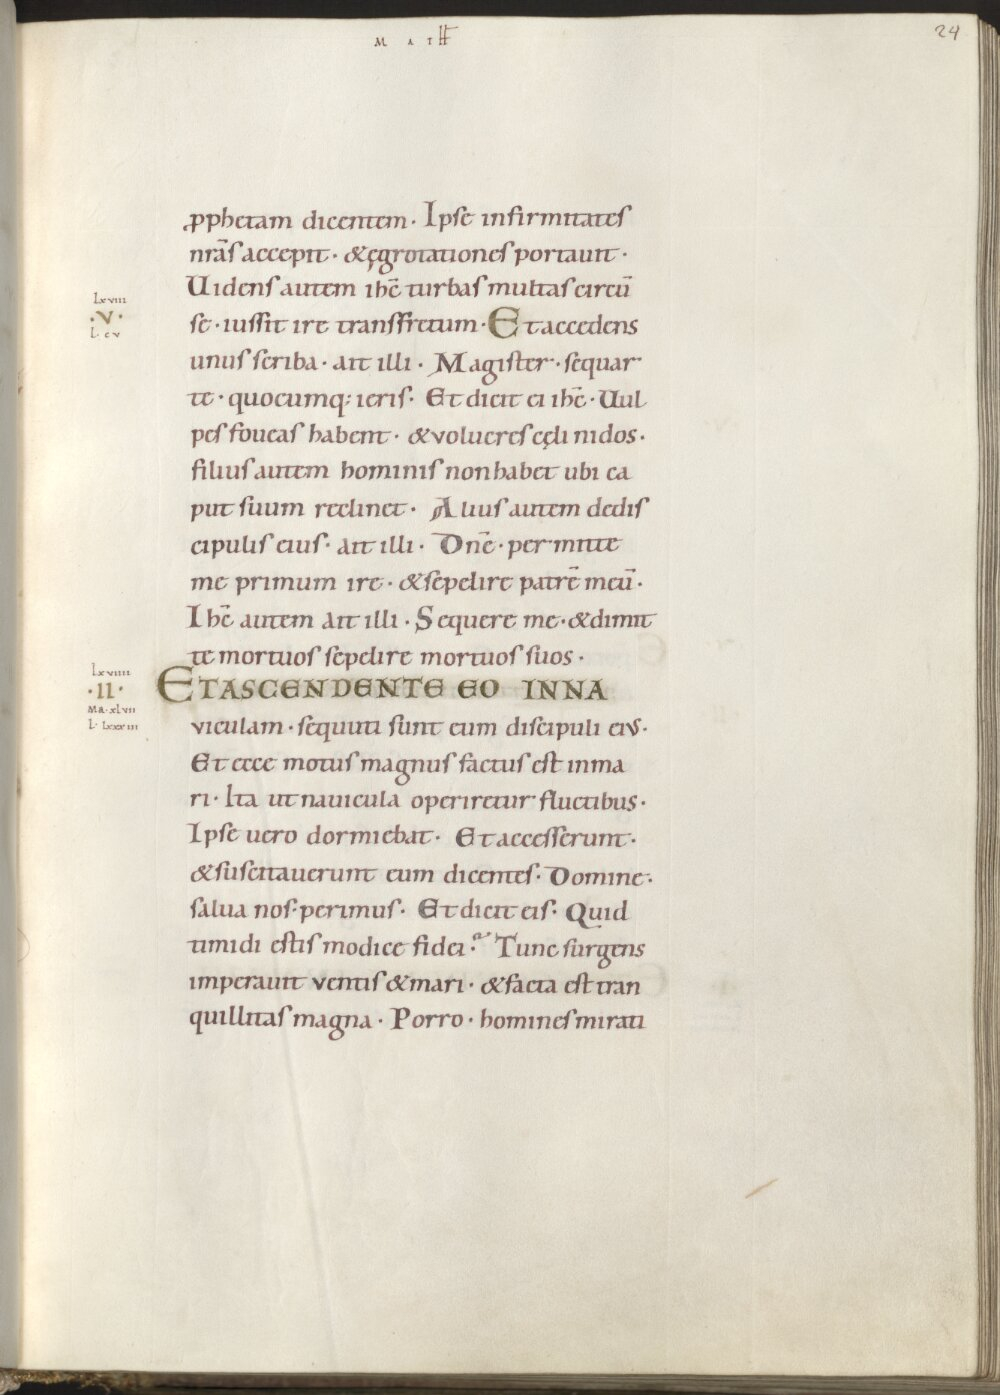 MATH
24
ꝓphetam dicentem · Ipse infirmitates
nr̄as accepit · & ęgrotationes portauit ·
Uidens autem ihc̄ turbas multas circū
se · iussit ire transfretum · Et accedens
unus scriba · ait illi · Magister · sequar
te · quocumq; ieris · Et dicit ei ihc̄ · Uul
pes foueas habent · & volucres cęli nidos ·
filius autem hominis non habet ubi ca
put suum reclinet · Alius autem de dis
cipulis eius · ait illi · Dn̄e · permitte
me primum ire · & sepelire patrē meū ·
Ihc̄ autem ait illi · Sequere me · & dimit
te mortuos sepelire mortuos suos ·
ET ASCENDENTE EO IN NA
viculam · sequuti sunt eum discipuli eius ·
Et ecce motus magnus factus est in ma
ri · Ita ut navicula operiretur fluctibus ·
Ipse uero dormiebat · Et accesserunt ·
& suscitauerunt eum dicentes · Domine ·
salua nos · perimus · Et dicit eis · Quid
timidi estis modice fidei · Tunc surgens
imperauit ventis & mari · & facta est tran
quillitas magna · Porro · homines mirati
Lxviii
·V·
L · cv
Lxviiii
·II·
Ma · xLvii
L · Lxxxiii